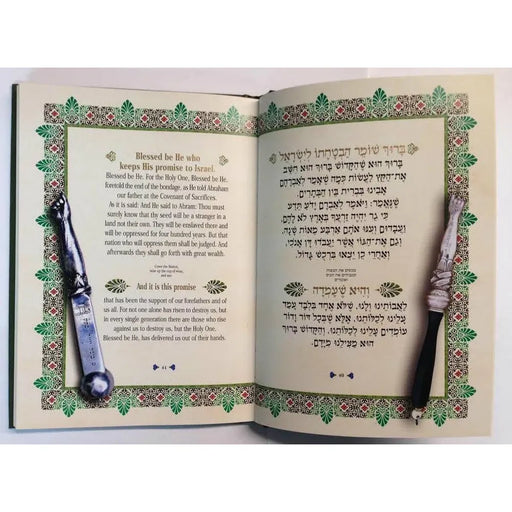 Blessed be He who
keeps His promise to Israel.
Blessed be He. For the Holy One, Blessed be He,
foretold the end of the bondage, as He told Abraham
our father at the Covenant of Sacrifices.
As it is said: And He said to Abram: Thou must
surely know that thy seed will be a stranger in a
land not their own. They will be enslaved there and
will be oppressed for four hundred years. But that
nation who will oppress them shall be judged. And
afterwards they shall go forth with great wealth.
Cover the Matzot,
And it is this promise
that has been the support of our forefathers and of
us all. For not one alone has risen to destroy us, but
in every single generation there are those who rise
against us to destroy us, but the Holy One,
Blessed be He, has delivered us out of their hands.
41
בָּרוּךְ שׁוֹמֵר הַבְטָחָתוֹ לְיִשְׂרָאֵל
בָּרוּךְ הוּא שֶׁהַקָּדוֹשׁ בָּרוּךְ הוּא חִשַּׁב
אֶת־הַקֵּץ לַעֲשׂוֹת כְּמָה שֶׁאָמַר לְאַבְרָהָם
אָבִינוּ בִּבְרִית בֵּין הַבְּתָרִים.
שֶׁנֶּאֱמַר: וַיֹּאמֶר לְאַבְרָם יָדֹעַ תֵּדַע
כִּי גֵר יִהְיֶה זַרְעֲךָ בְּאֶרֶץ לֹא לָהֶם
וַעֲבָדוּם וְעִנּוּ אֹתָם אַרְבַּע מֵאוֹת שָׁנָה.
וְגַם אֶת־הַגּוֹי אֲשֶׁר יַעֲבֹדוּ דָּן אָנֹכִי,
וְאַחֲרֵי כֵן יֵצְאוּ בִּרְכֻשׁ גָּדוֹל.
מכסים את המצות
וְהִיא שֶׁעָמְדָה
לַאֲבוֹתֵינוּ וְלָנוּ, שֶׁלֹּא אֶחָד בִּלְבַד עָמַד
עָלֵינוּ לְכַלּוֹתֵנוּ, אֶלָּא שֶׁבְּכָל דּוֹר וָדוֹר
עוֹמְדִים עָלֵינוּ לְכַלּוֹתֵנוּ, וְהַקָּדוֹשׁ בָּרוּךְ
הוּא מַצִּילֵנוּ מִיָּדָם.
40